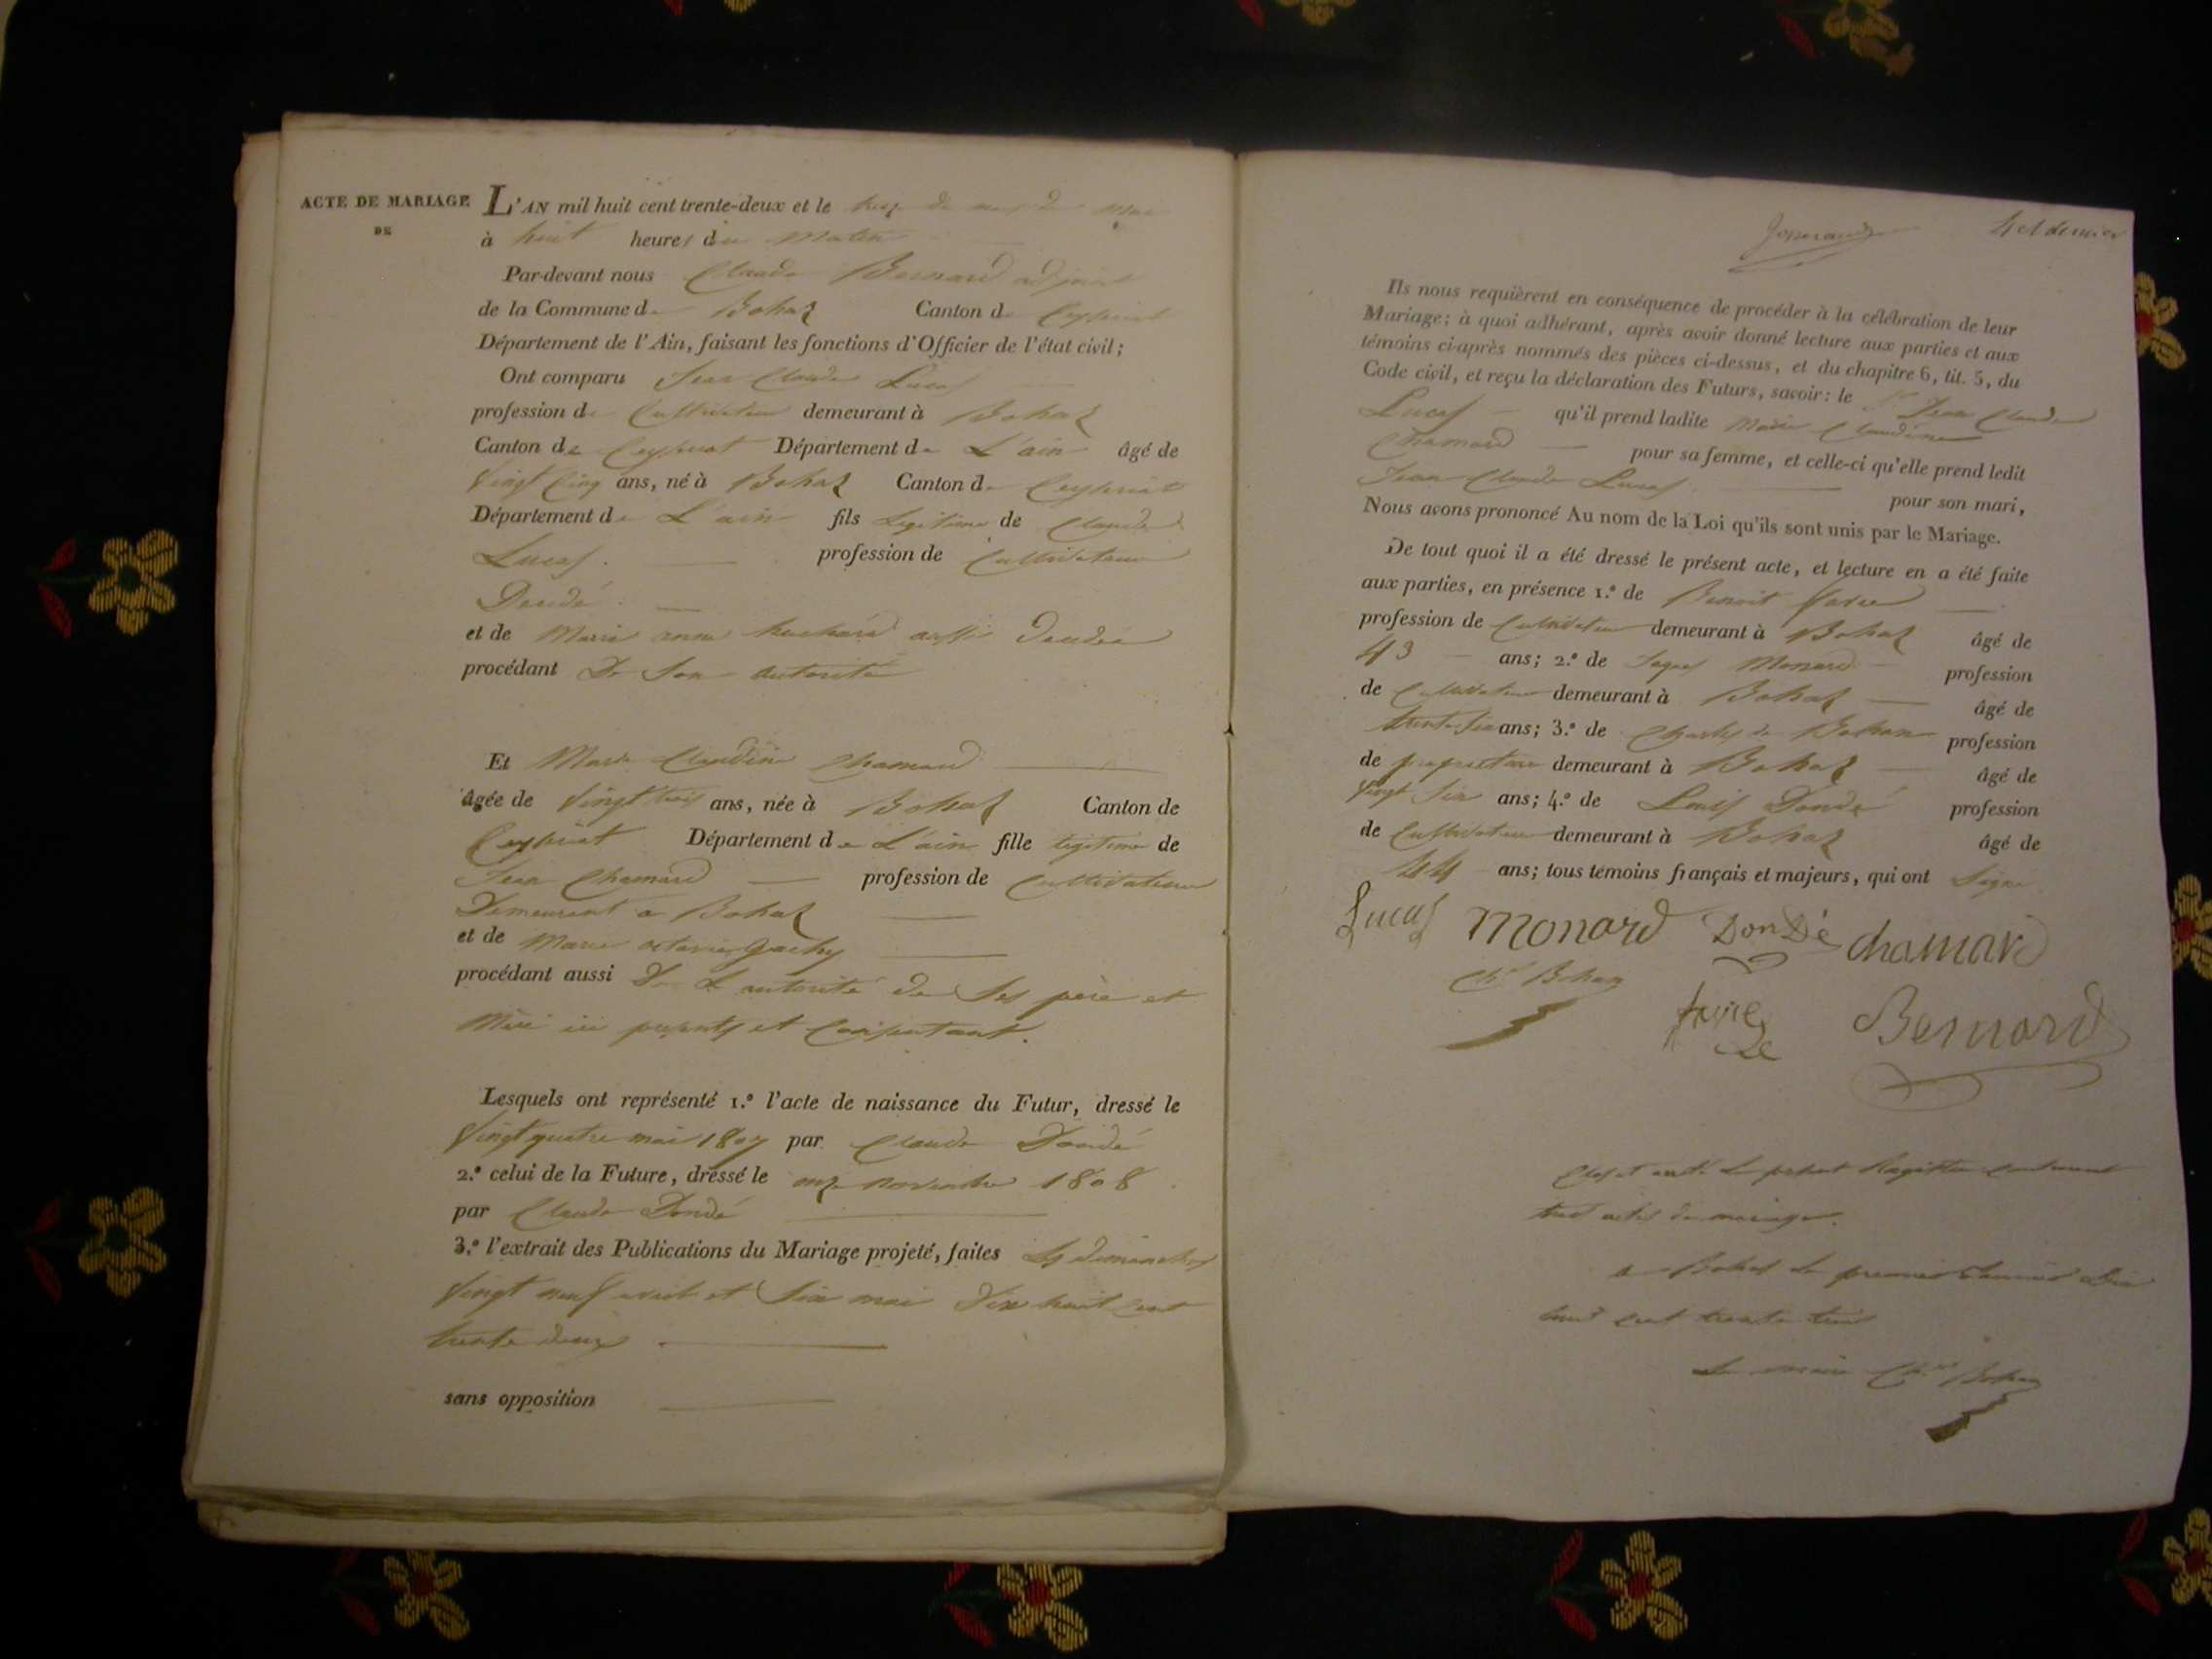 ACTE DE MARIAGE
DE
L'AN mil huit cent trente-deux et le du mois de mai
à huit heures du Matin
Par-devant nous Claude Bernard adjoint
de la Commune de Bohaz Canton de Ceyzeriat
Département de l'Ain, faisant les fonctions d'Officier de l'état civil;
Ont comparu Jean Claude Lucas
profession de Cultivateur demeurant à Bohaz
Canton de Ceyzeriat Département de L'ain âgé de
Vingt Cinq ans, né à Bohaz Canton de Ceyzeriat
Département de L'ain fils Legitime de Claude
Lucas profession de Cultivateur
et de Marie anne aussi
procédant De Son autorité
Et Marie Claudine Chamard
âgée de Vingt trois ans, née à Bohaz Canton de
Ceyzeriat Département de L'ain fille legitime de
Jean Chamard profession de Cultivateur
Demeurant a Bohaz
et de Marie
procédant aussi De L'autorité de Ses père et
Mère ici presents et Consentant.
Lesquels ont représenté 1.º l'acte de naissance du Futur, dressé le
Vingt quatre mai 1807 par Claude Dondé
2.º celui de la Future, dressé le onze novembre 1808
par Claude Dondé
3.º l'extrait des Publications du Mariage projeté, faites les dimanches
Vingt neuf avril et Six mai Dix huit cent
trente deux
sans opposition
4 et dernier
Ils nous requièrent en conséquence de procéder à la célébration de leur
Mariage; à quoi adhérant, après avoir donné lecture aux parties et aux
témoins ci-après nommés des pièces ci-dessus, et du chapitre 6, tit. 5, du
Code civil, et reçu la déclaration des Futurs, savoir: le Sr Jean Claude
Lucas qu'il prend ladite Marie Claudine
Chamard pour sa femme, et celle-ci qu'elle prend ledit
Jean Claude Lucas pour son mari,
Nous avons prononcé Au nom de la Loi qu'ils sont unis par le Mariage.
De tout quoi il a été dressé le présent acte, et lecture en a été faite
aux parties, en présence 1.º de Benoit
profession de Cultivateur demeurant à Bohaz âgé de
43 ans; 2.º de Monard profession
de Cultivateur demeurant à Bohaz âgé de
trente Six ans; 3.º de Charles de Bohan profession
de proprietaire demeurant à Bohaz âgé de
Vingt Six ans; 4.º de Louis Dondé profession
de Cultivateur demeurant à Bohaz âgé de
44 ans; tous témoins français et majeurs, qui ont Signé
Lucas Monard DonDé chamard
Ch Bohan
Bernard
Clos et arrêté le présent Registre contenant
actes de mariage.
a Bohaz le premier Janvier Dix
huit cent trente trois
Le maire Ch Bohan